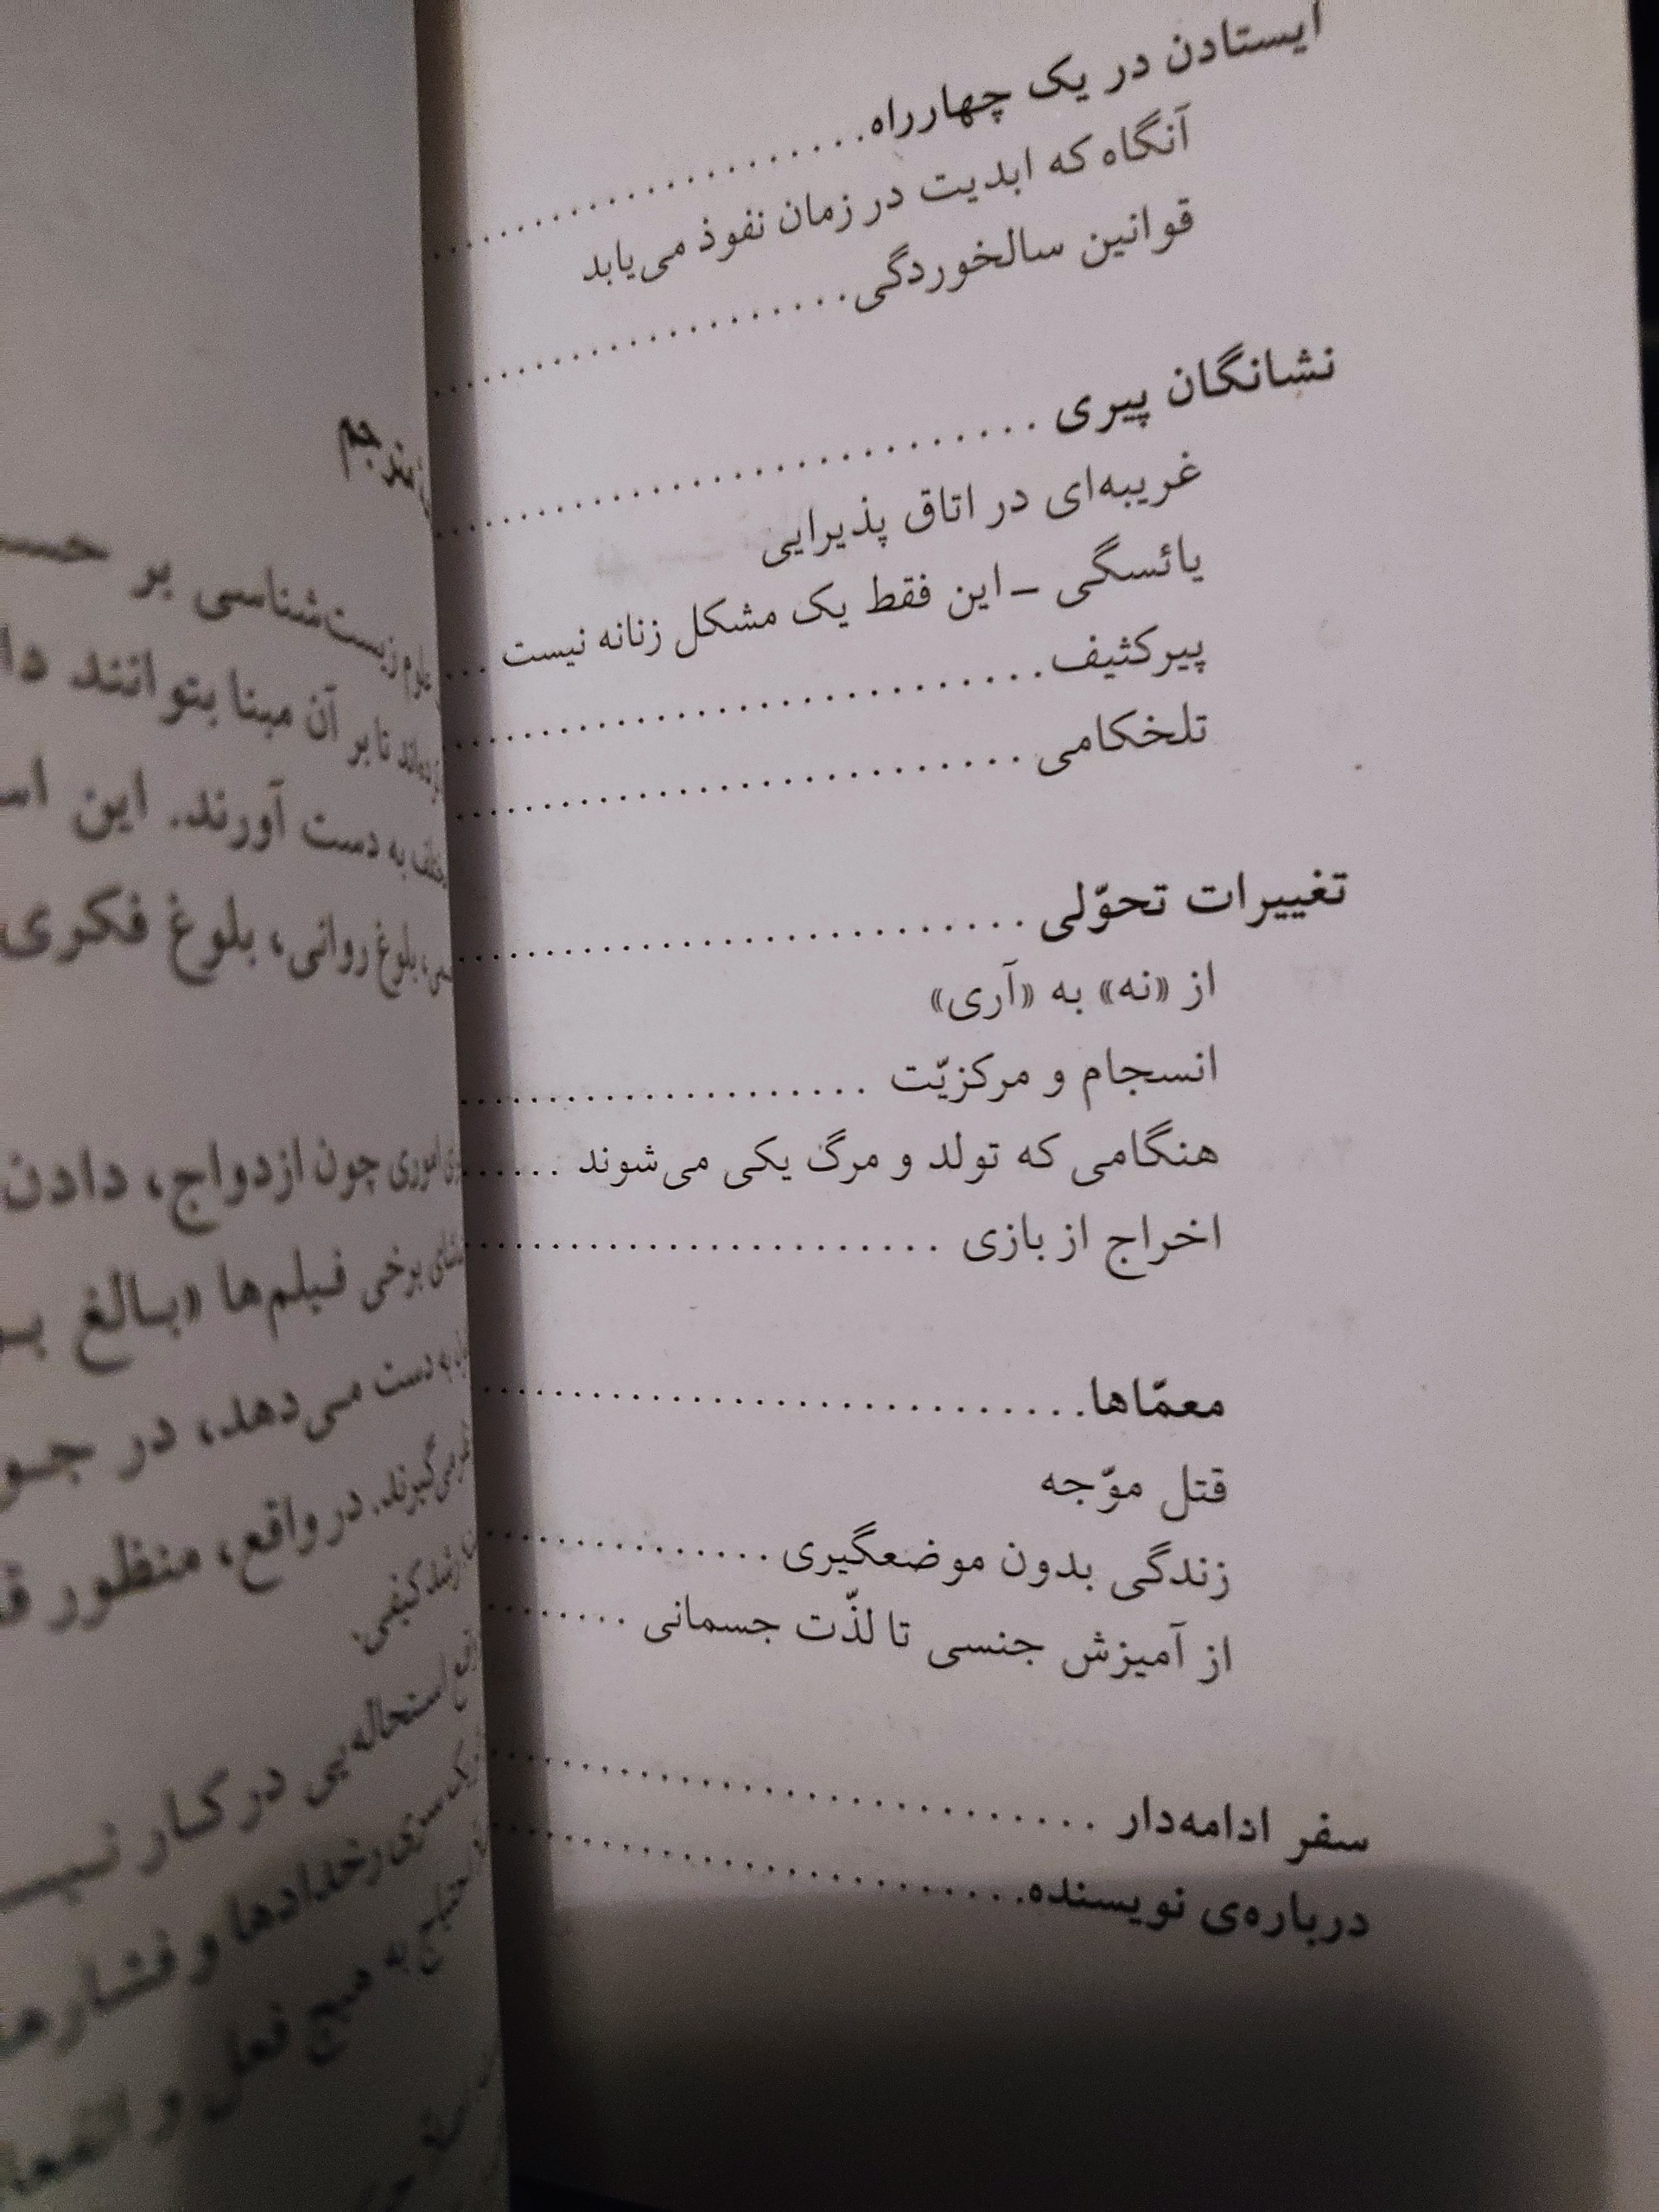 ایستادن در یک چهارراه
آنگاه که ابدیت در زمان نفوذ می‌یابد
قوانین سالخوردگی
نشانگان پیری
غریبه‌ای در اتاق پذیرایی
یائسگی – این فقط یک مشکل زنانه نیست
پیر کثیف
تلخکامی
تغییرات تحوّلی
از «نه» به «آری»
انسجام و مرکزیّت
هنگامی که تولد و مرگ یکی می‌شوند
اخراج از بازی
معمّاها
قتل موّجه
زندگی بدون موضعگیری
از آمیزش جنسی تا لذّت جسمانی
سفر ادامه‌دار
درباره‌ی نویسنده
مترجم
زیست‌شناسی بر
تا بر آن مبنا بتوانند
به دست آورند. این
بلوغ روانی، بلوغ فکری
اموری چون ازدواج، دادن
برخی فیلم‌ها «بالغ
به دست می‌دهد، در
می‌گیرند. در واقع، منظور
رشد کیفی.
استحاله‌یی در کار
یک سری رخدادها و
به هیچ فعل و